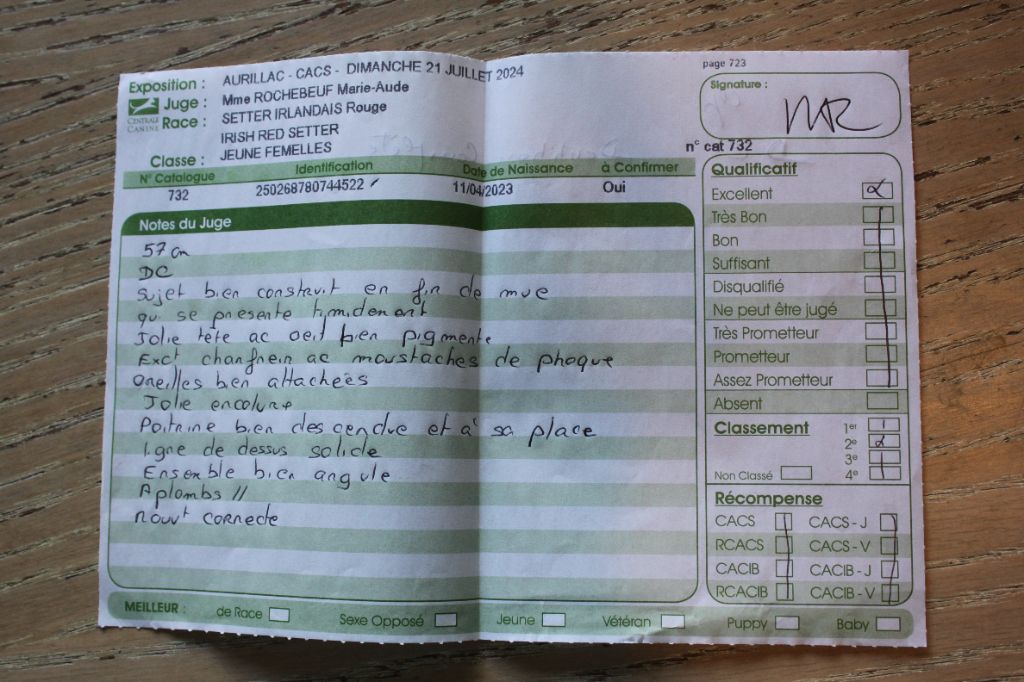 page 723
Exposition : AURILLAC - CACS - DIMANCHE 21 JUILLET 2024
Signature :
CENTRALE CANINE
Juge : Mme ROCHEBEUF Marie-Aude
Race : SETTER IRLANDAIS Rouge
IRISH RED SETTER
Classe : JEUNE FEMELLES
n° cat 732
N° Catalogue Identification Date de Naissance à Confirmer
732 250268780744522 11/04/2023 Oui
Notes du Juge
57 cm
DC
Sujet bien construit en fin de mue
qui se présente timidement
Jolie tête ac oeil bien pigmenté
Exct chanfrein ac moustaches de phoque
oreilles bien attachées
Jolie encolure
Poitrine bien descendue et à sa place
ligne de dessus solide
Ensemble bien angulé
Aplombs //
mouvt correcte
Qualificatif
Excellent
Très Bon
Bon
Suffisant
Disqualifié
Ne peut être jugé
Très Prometteur
Prometteur
Assez Prometteur
Absent
Classement
1er
2e
3e
Non Classé 4e
Récompense
CACS CACS - J
RCACS CACS - V
CACIB CACIB - J
RCACIB CACIB - V
MEILLEUR : de Race Sexe Opposé Jeune Vétéran Puppy Baby